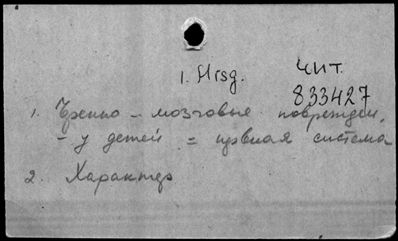 1. Hrsg.
чит.
833427
1. Черепно - мозговые поврежден.
- у детей = нрвная система
2. Характер